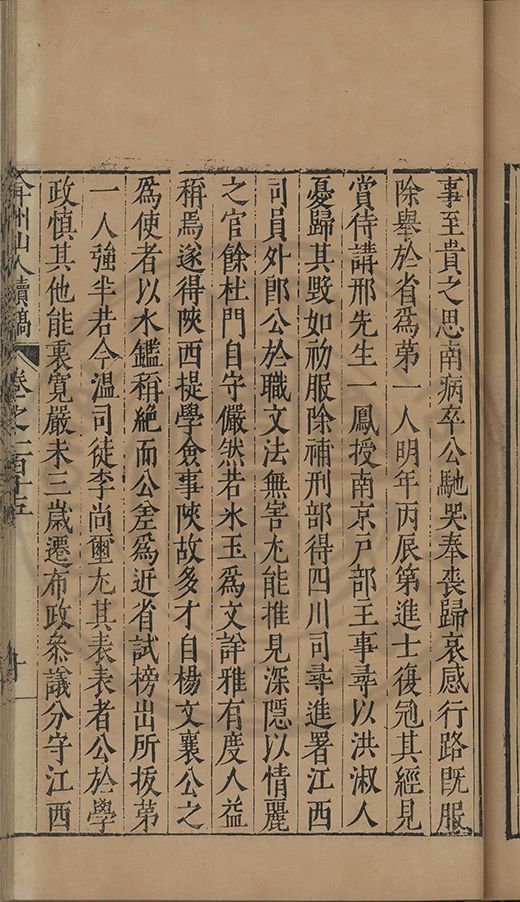 事至貴之思南病卒公馳哭奉喪歸哀感行路既服
除舉於省爲第一人明年丙辰第進士復冠其經見
賞侍講邢先生一鳳授南京戶部主事尋以洪淑人
憂歸其毀如初服除補刑部得四川司尋進署江西
司員外郎公於職文法無害尤能推見深隱以情麗
之官餘杜門自守儼然若氷玉爲文詳雅有度人益
稱焉遂得陝西提學僉事陝故多才自楊文襄公之
爲使者以水鑑稱絕而公差爲近省試榜出所拔第
一人強半若今溫司徒李尚璽尤其表表者公於學
政慎其他能裏寬嚴未三歲遷布政叅議分守江西
弇州山人續稿 卷之一百十五 十一